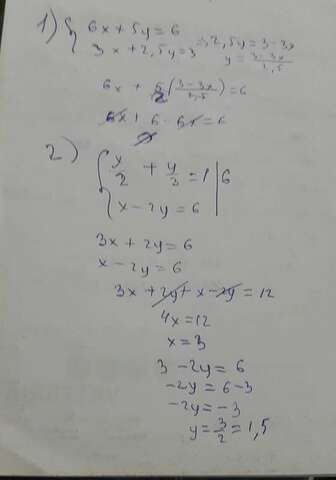 1) { 6x + 5y = 6
3x + 2,5y = 3 => 2,5y = 3 - 3x
y = (3 - 3x)/2,5
6x + 5(3 - 3x / 2,5) = 6
6x + 6 - 6x = 6
2) { x/2 + y/3 = 1 | 6
x - 2y = 6
3x + 2y = 6
x - 2y = 6
3x + 2y + x - 2y = 12
4x = 12
x = 3
3 - 2y = 6
-2y = 6 - 3
-2y = -3
y = 3/2 = 1,5